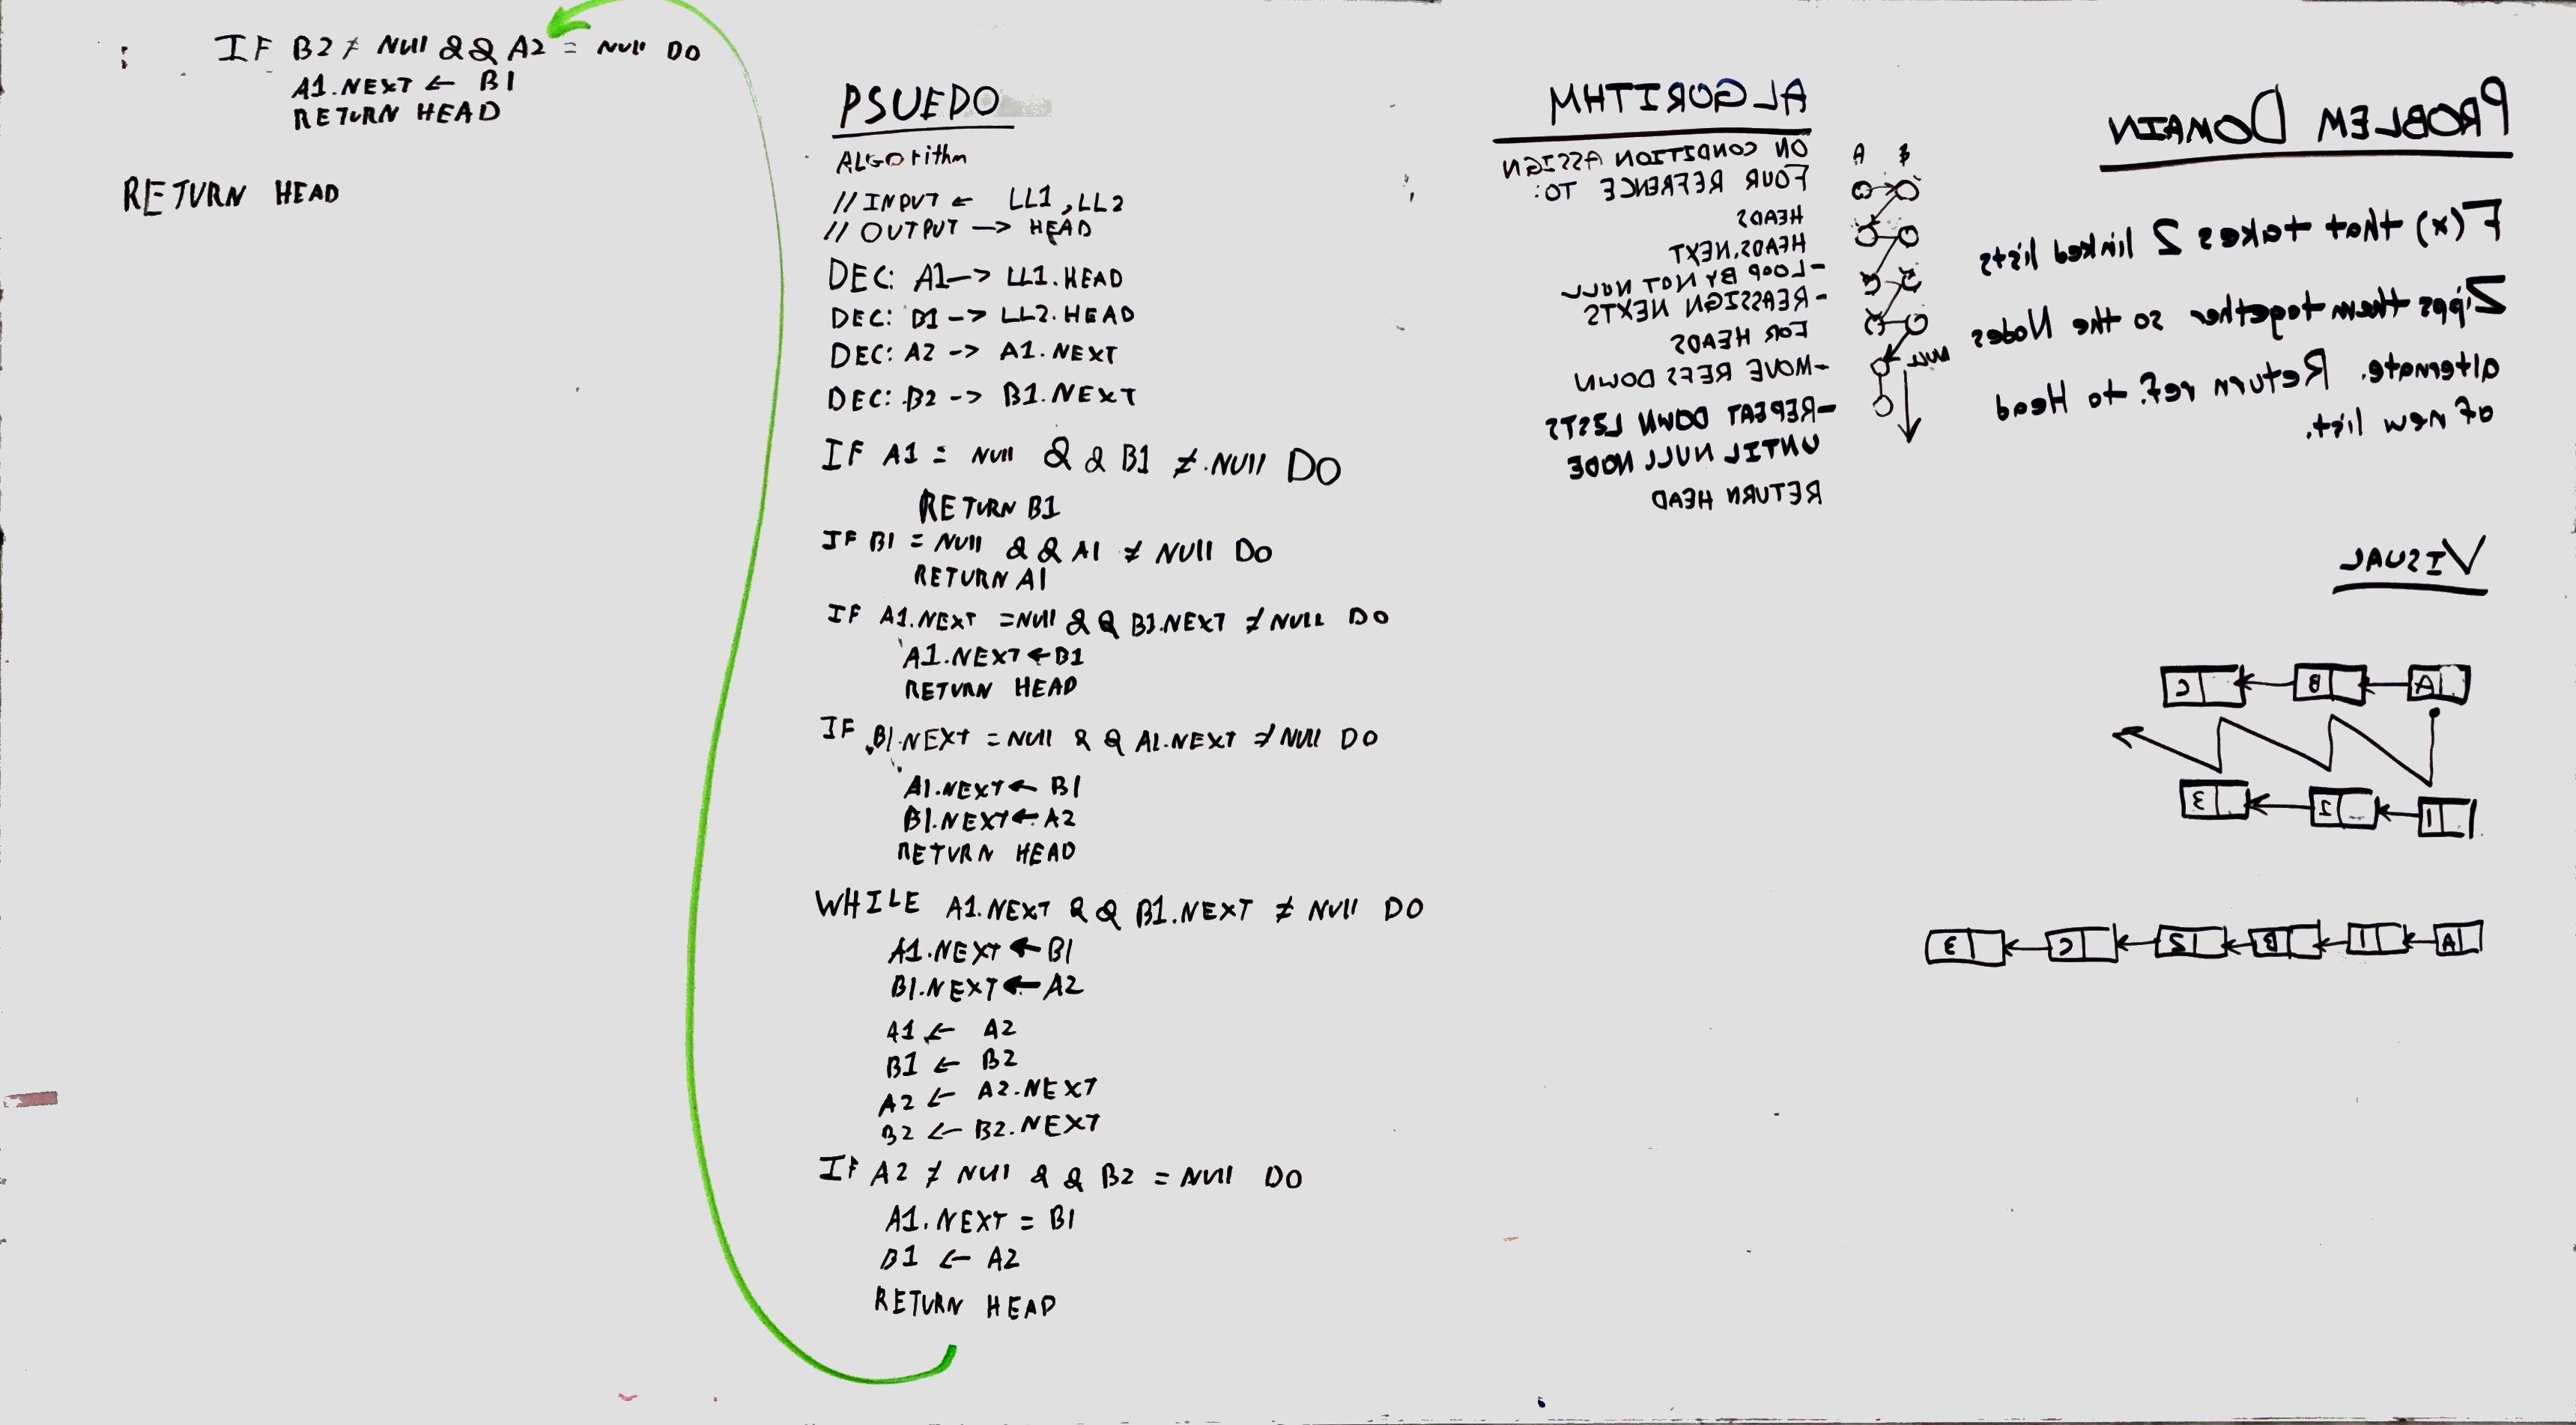 IF B2 ≠ NUll && A2 = NUll DO
A1.NEXT ← B1
RETURN HEAD
RETURN HEAD
PSUEDO
ALGOrithm
// INPUT ← LL1, LL2
// OUTPUT → HEAD
DEC: A1 -> LL1.HEAD
DEC: B1 -> LL2.HEAD
DEC: A2 -> A1.NEXT
DEC: B2 -> B1.NEXT
IF A1 = NUll && B1 ≠ NUll DO
RETURN B1
IF B1 = NUll && A1 ≠ NUll DO
RETURN A1
IF A1.NEXT = NUll && B1.NEXT ≠ NULL DO
A1.NEXT ← B1
RETURN HEAD
IF B1.NEXT = NUll && A1.NEXT ≠ NUll DO
A1.NEXT ← B1
B1.NEXT ← A2
RETURN HEAD
WHILE A1.NEXT && B1.NEXT ≠ NUll DO
A1.NEXT ← B1
B1.NEXT ← A2
A1 ← A2
B1 ← B2
A2 ← A2.NEXT
B2 ← B2.NEXT
IF A2 ≠ NUll && B2 = NUll DO
A1.NEXT = B1
B1 ← A2
RETURN HEAD
ALGORITHM
ON CONDITION ASSIGN
FOUR REFRENCE TO:
HEADS
HEADS.NEXT
-LOOP BY NOT NULL
-REASSIGN NEXTS
FOR HEADS
-MOVE REFS DOWN
-REPEAT DOWN LISTS
UNTIL NULL NODE
RETURN HEAD
A B
NULL
PROBLEM DOMAIN
F(x) that takes 2 linked lists
Zipps them together so the Nodes
alternate. Return ref. to Head
of new list.
VISUAL
A B C
1 2 3
A 1 B 2 C 3